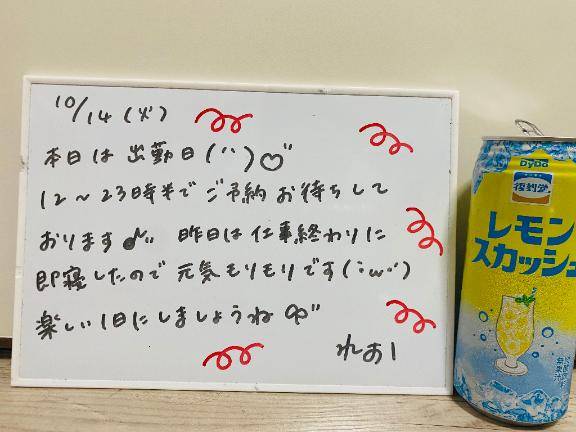 10/14(火)
本日は出勤日(¨)♡"
12〜23時半でご予約お待ちして
おります♪" 昨日は仕事終わりに
即寝したので元気もりもりです(˙ω˙)
楽しい1日にしましょうね"
れあ
DyDo
復刻堂
レモン
スカッシュ
無果汁